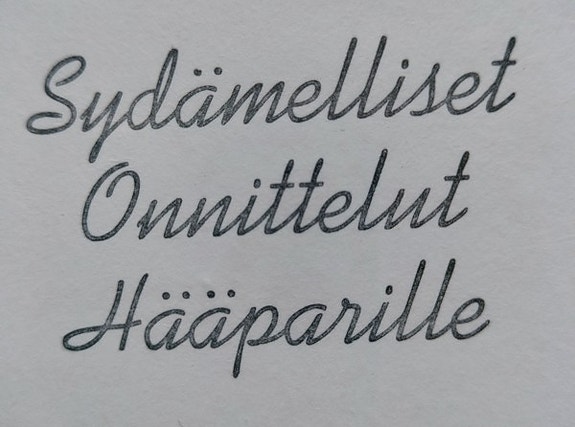 Sydämelliset
Onnittelut
Hääparille